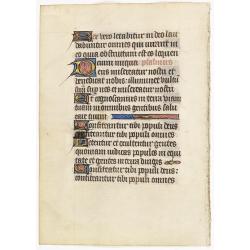 Rex vero letabitur in deo lau
dabuntur omnes qui iurant in
eo quia obstructum est os loquen
cium iniqua psalmus
Deus misereatur nostri et
benedicat nobis illuminet vultu
suum super nos et misereatur nostri
Ut cognoscamus in terra viam
tuam in omnibus gentibus salu
tare tuum
Confiteantur tibi populi deus
confiteantur tibi populi omnes
Letentur et exultent gentes
quoniam iudicas populos in equi
tate et gentes in terra dirigis
Confiteantur tibi populi deus
confiteantur tibi populi omnes